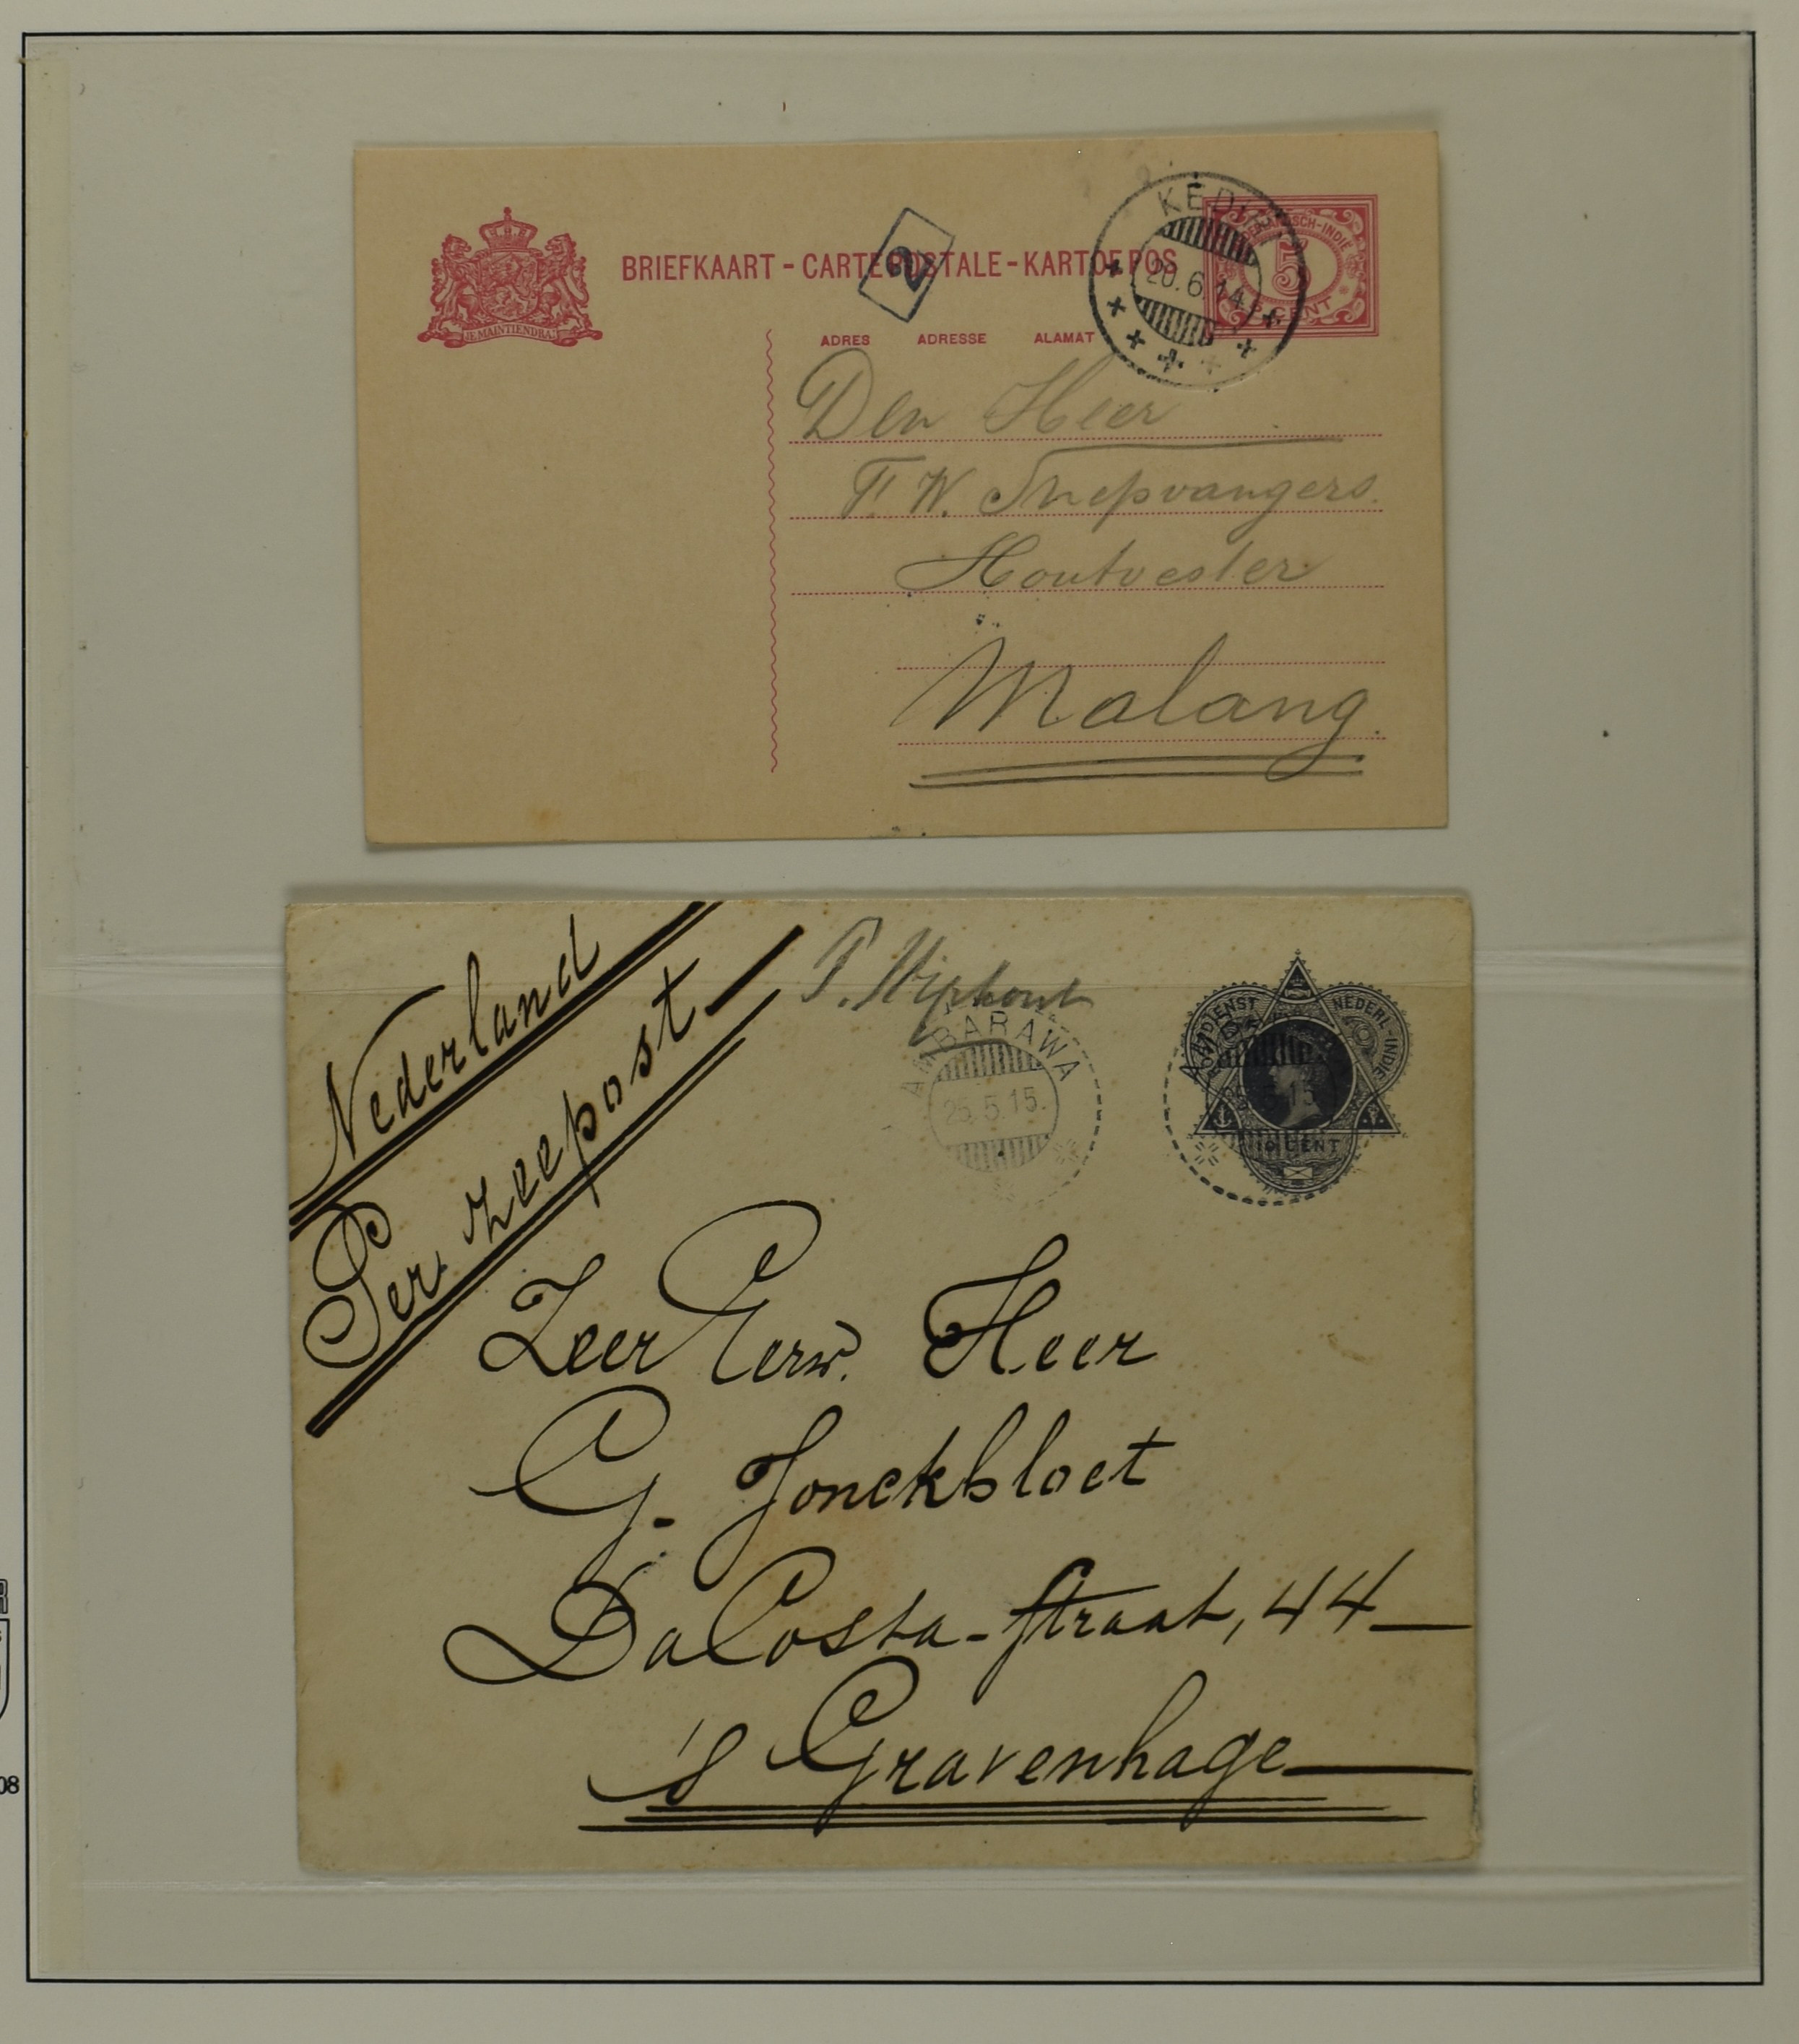 KEDIRI
20.6.14
NEDERLANDSCH-INDIE
5
CENT
BRIEFKAART - CARTE POSTALE - KARTOE POS
2
JE MAINTIENDRAI
ADRES ADRESSE ALAMAT
Den Heer
F. W. Snepvangers.
Houtvester
Malang.
Nederland
Per zeepost
P.
AMBARAWA
25.5.15.
POSTDIENST NEDERL-INDIE
10 CENT
Zeer Eerw. Heer
G. Jonckbloet
Da Costa-straat, 44
's Gravenhage
08